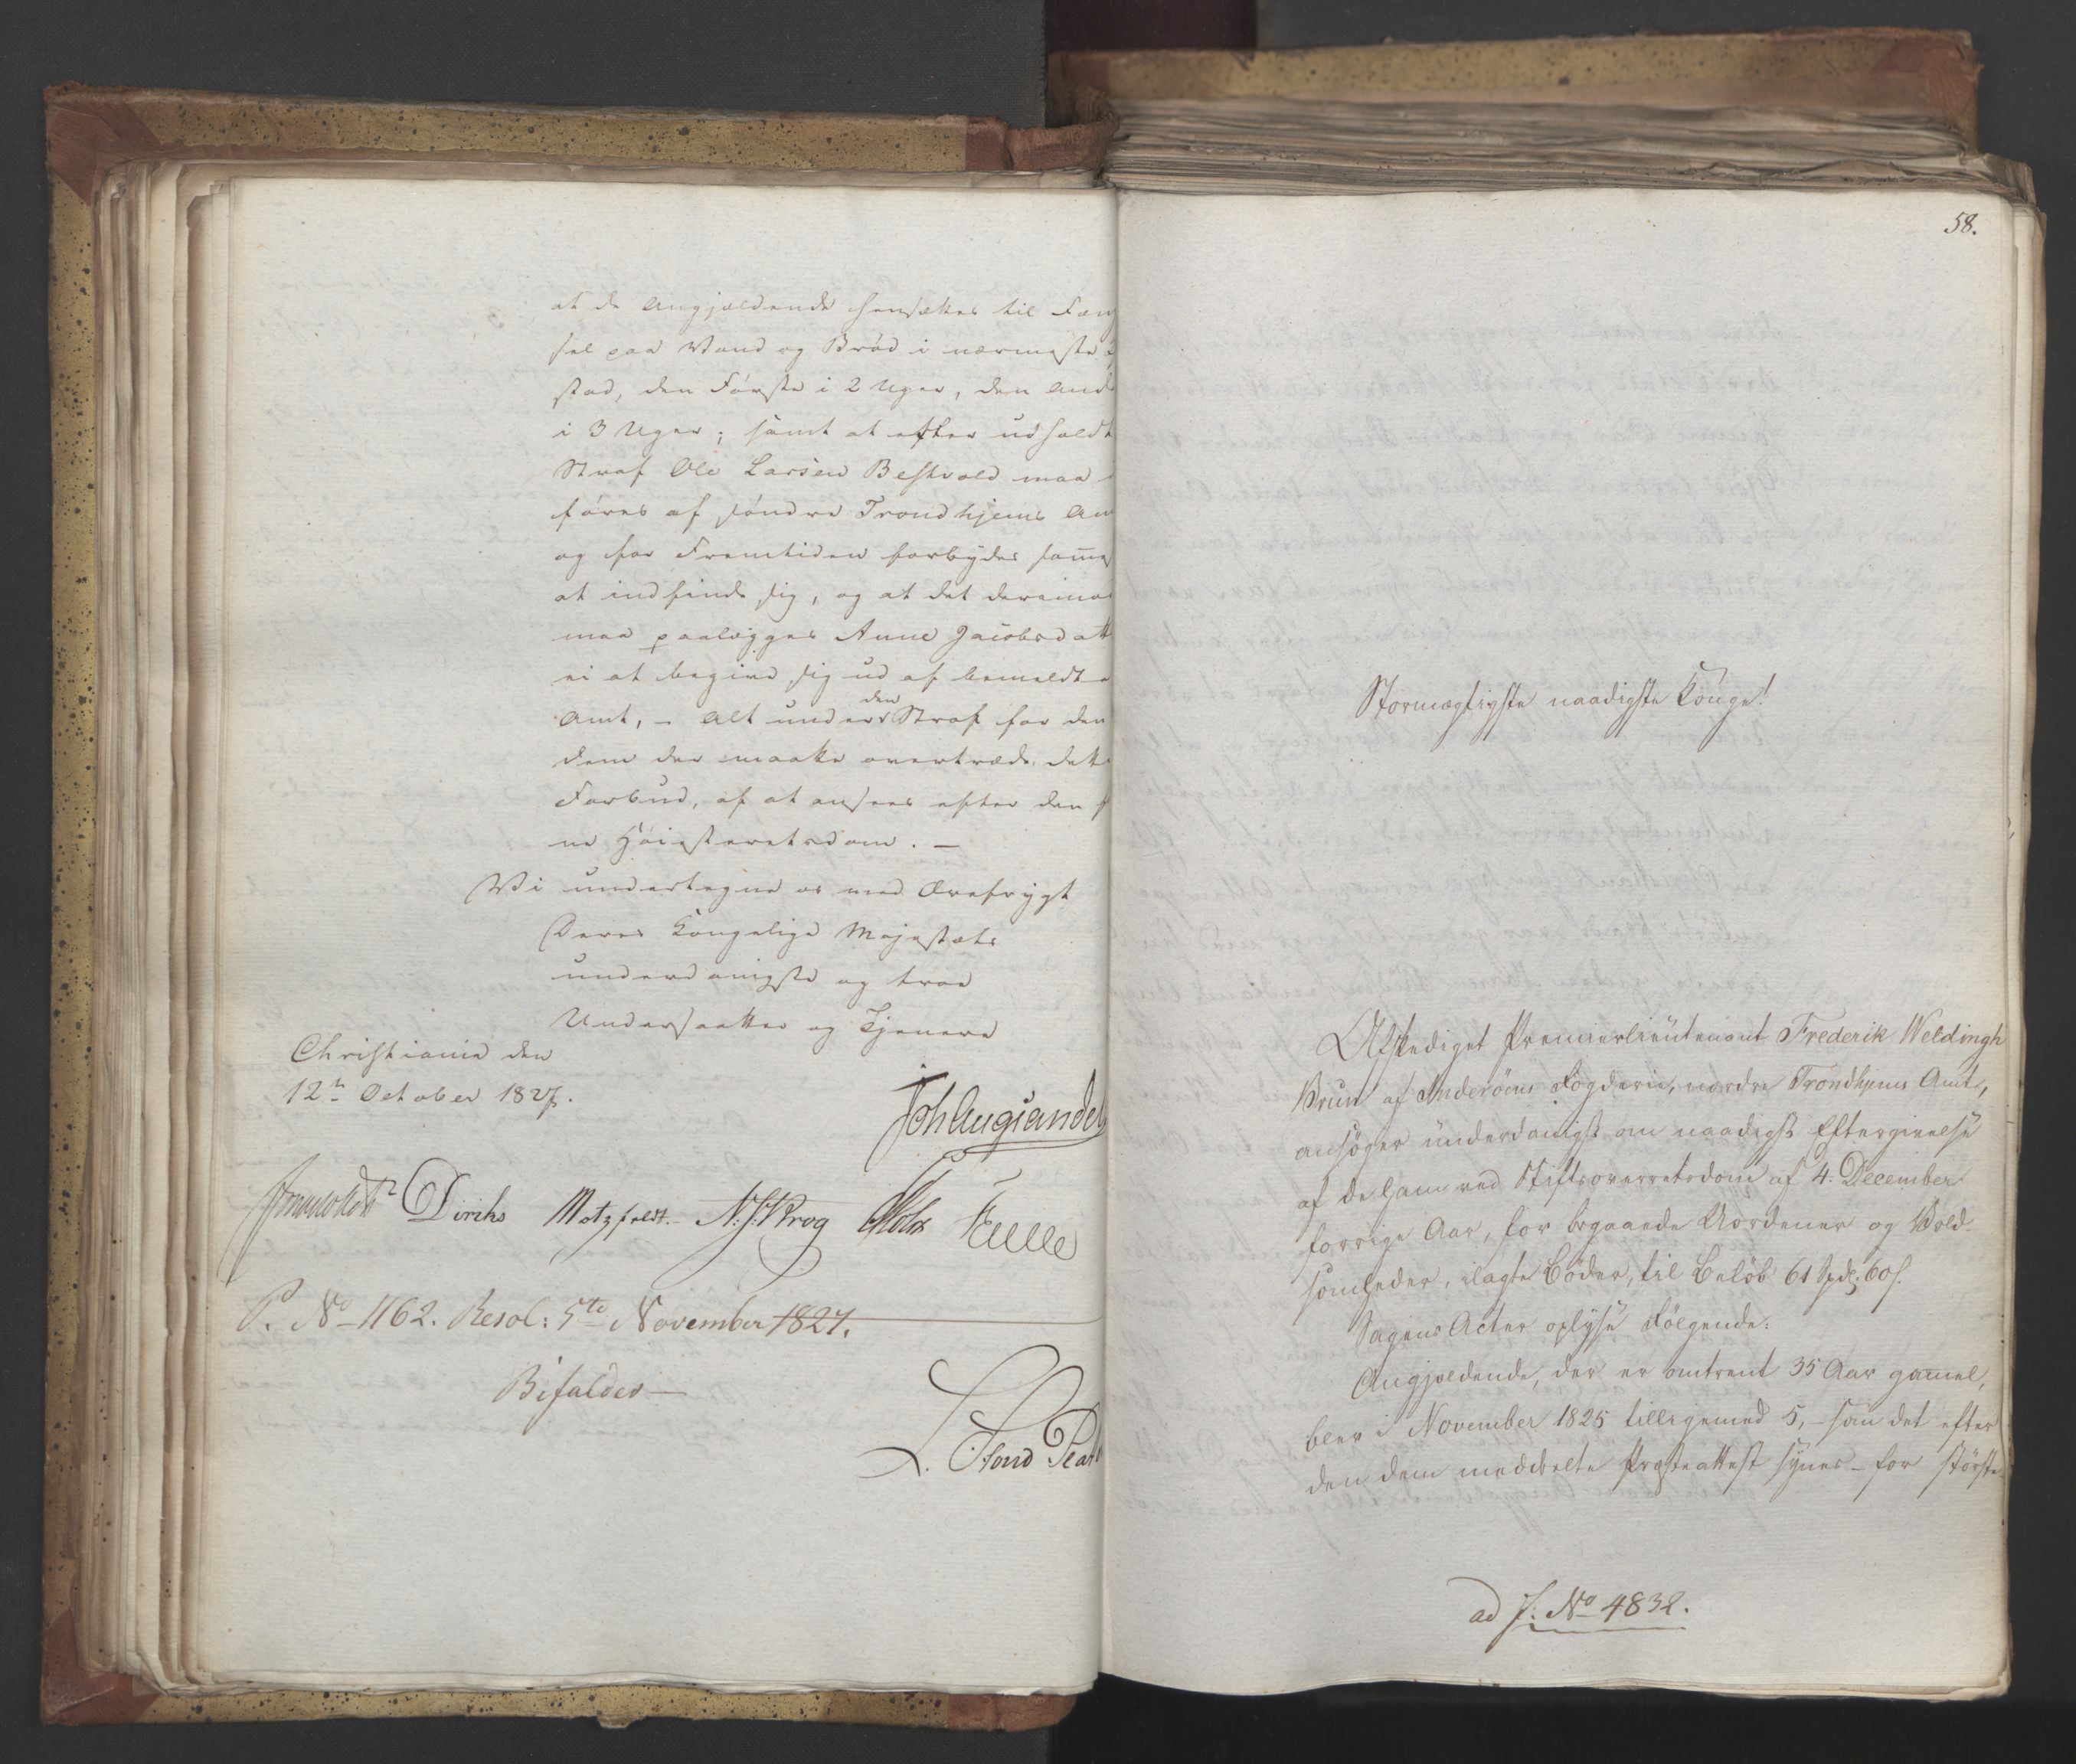 at de Angjældende hensættes til Fæng
sel paa Vand og Brød i nærmeste
stad, den Første i 2 Uger, den And
i 3 Uger; samt at efter udholdt
Straf Ole Larsen Bestvold maa
føres af søndre Trondhjems Am
og for Fremtiden forbydes samme
at indfinde sig, og at det derimod
maa paalægges Anne Jacobsdatt
ei at begive sig ud af bemeldte
Amt, – Alt under den Straf for den
dem der maatte overtræde dette
Forbud, af at ansees efter den
ne Høiesteretsdom. –
Vi undertegne os med Ærefrygt
Deres Kongelige Majestæts
underdanigste og troe
Undersaatter og Tjenere
Christiania den
12te October 1827.
Joh Aug Sandels
Diriks Motzfeldt. N. J. Krog
P. No 1162. Resol: 5te November 1827.
Bifaldes –
58.
Stormægtigste naadigste Konge!
Afskediget Premierlieutenant Frederik Weldingh
Brun af Inderøens Fogderie, nordre Trondhjems Amt,
ansøger underdanigst om naadigst Eftergivelse
af de ham ved Stiftsoverretsdom af 4. December
forrige Aar, for begaaende Uordener og Vold-
somheder, ilagte Bøder, til Beløb 61 Spdl. 60 s.
Sagens Acter oplyse Følgende:
Angjældende, der er omtrent 35 Aar gamel,
blev i November 1825 tilligemed 5, – som det efter
den dem meddeelte Præsteattest synes – for største
ad J: No 4832.